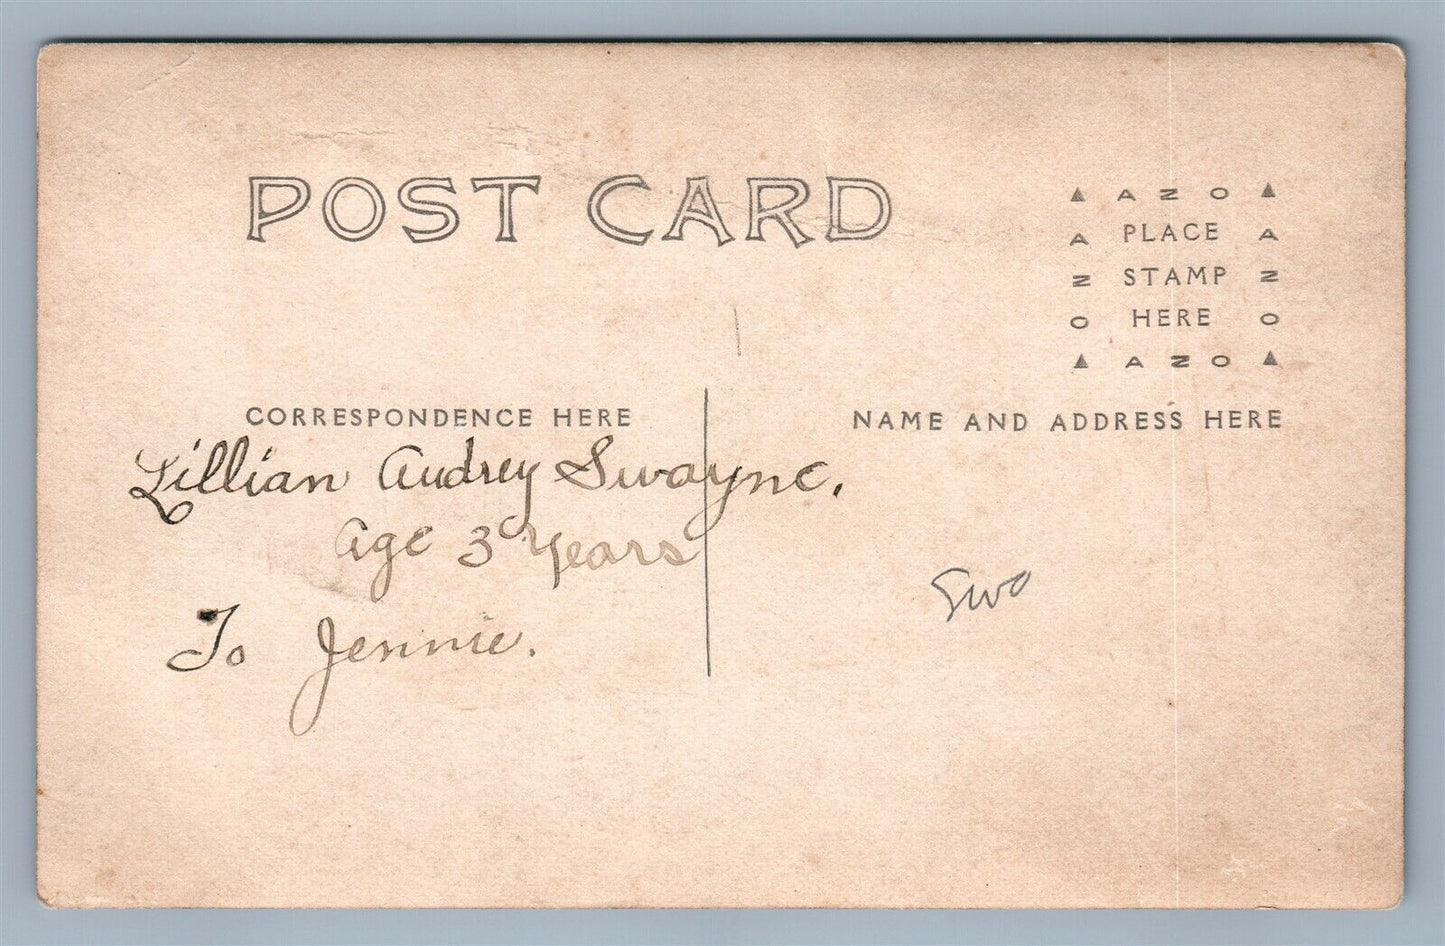 POST CARD
AZO
A PLACE A
N STAMP N
O HERE O
AZO
CORRESPONDENCE HERE
NAME AND ADDRESS HERE
Lillian Audrey Swayne.
Age 3 Years
To Jennie.